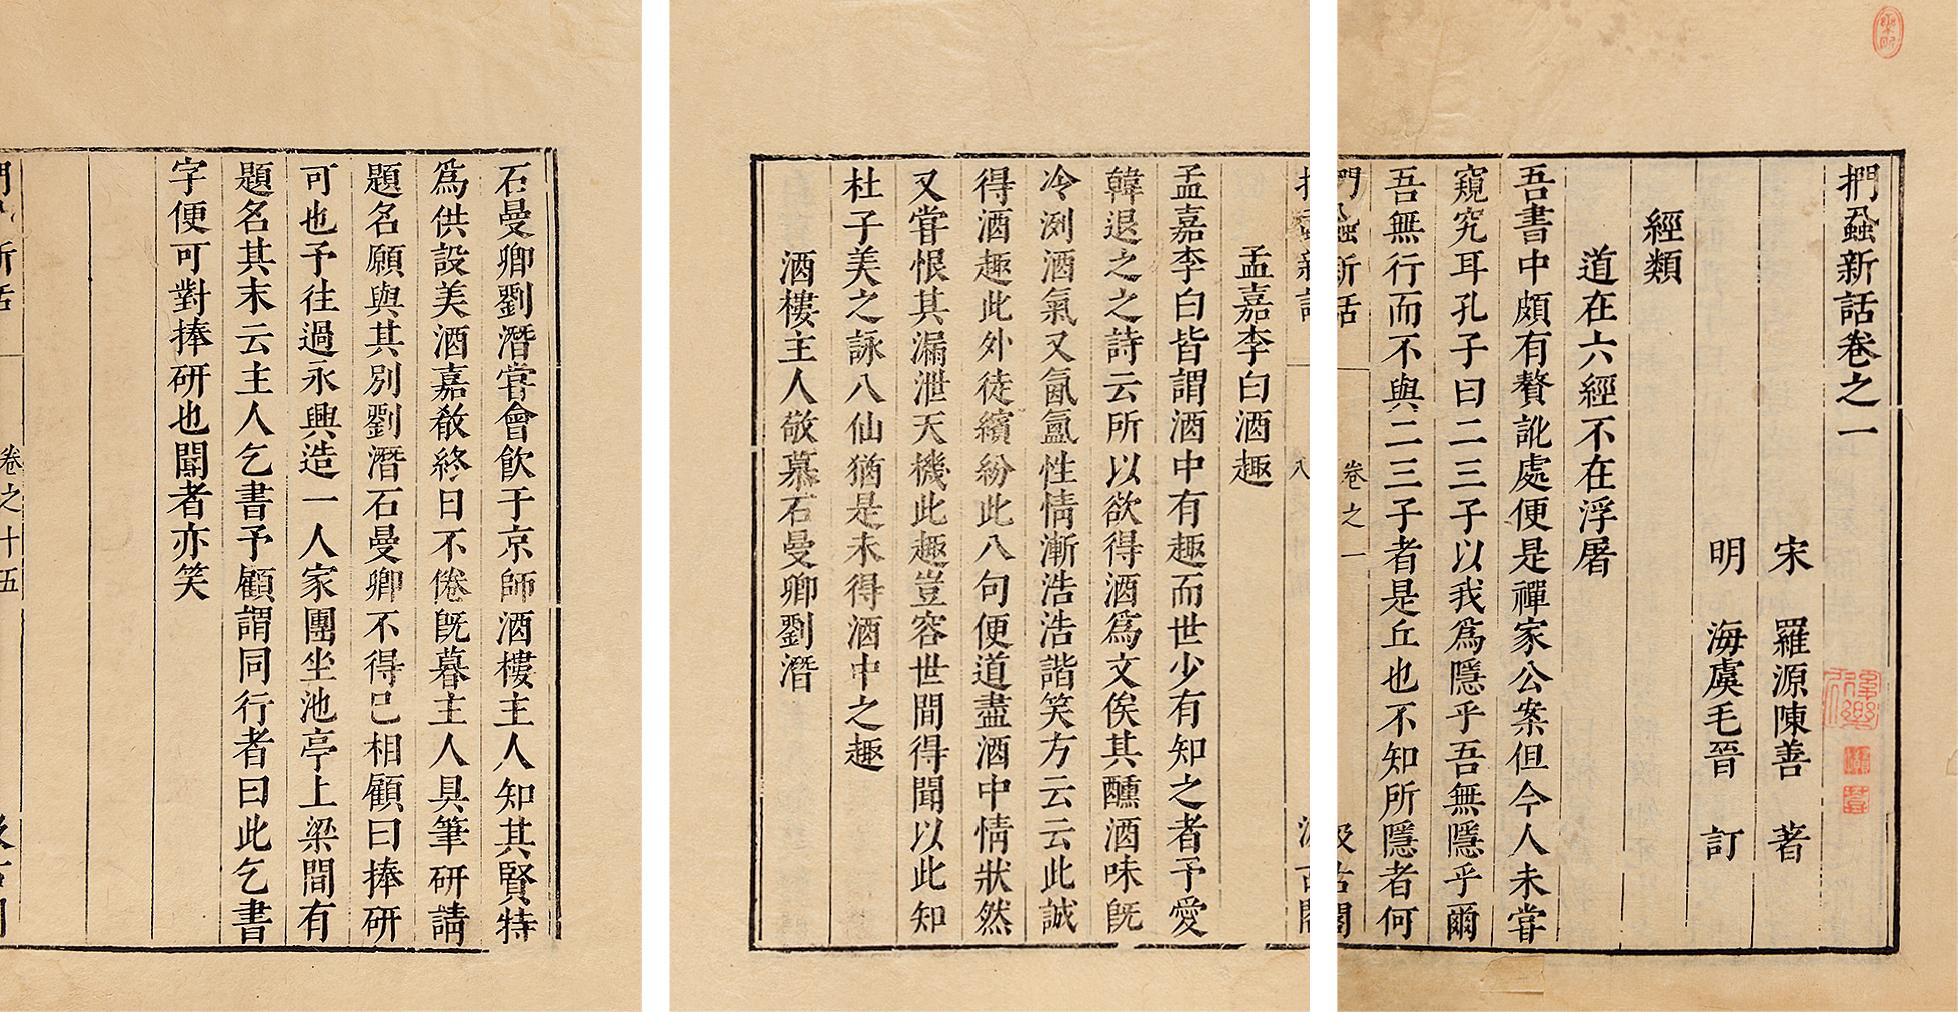 捫蝨新話卷之一
宋 羅源陳善 著
明 海虞毛晉 訂
經類
道在六經不在浮屠
吾書中頗有贅訛處便是禪家公案但今人未嘗
窺究耳孔子曰二三子以我為隱乎吾無隱乎爾
吾無行而不與二三子者是丘也不知所隱者何
捫蝨新話 卷之一 汲古閣
八
孟嘉李白酒趣
孟嘉李白皆謂酒中有趣而世少有知之者予愛
韓退之之詩云所以欲得酒為文俟其醺酒味既
冷冽酒氣又氤氳性情漸浩浩諧笑方云云此誠
得酒趣此外徒繽紛此八句便道盡酒中情狀然
又嘗恨其漏泄天機此趣豈容世間得聞以此知
杜子美之詠八仙猶是未得酒中之趣
酒樓主人敬慕石曼卿劉潛
石曼卿劉潛嘗會飲于京師酒樓主人知其賢特
為供設美酒嘉殽終日不倦既暮主人具筆研請
題名願與其別劉潛石曼卿不得已相顧曰捧研
可也予往過永興造一人家團坐池亭上梁間有
題名其末云主人乞書予顧謂同行者曰此乞書
字便可對捧研也聞者亦笑
卷之十五